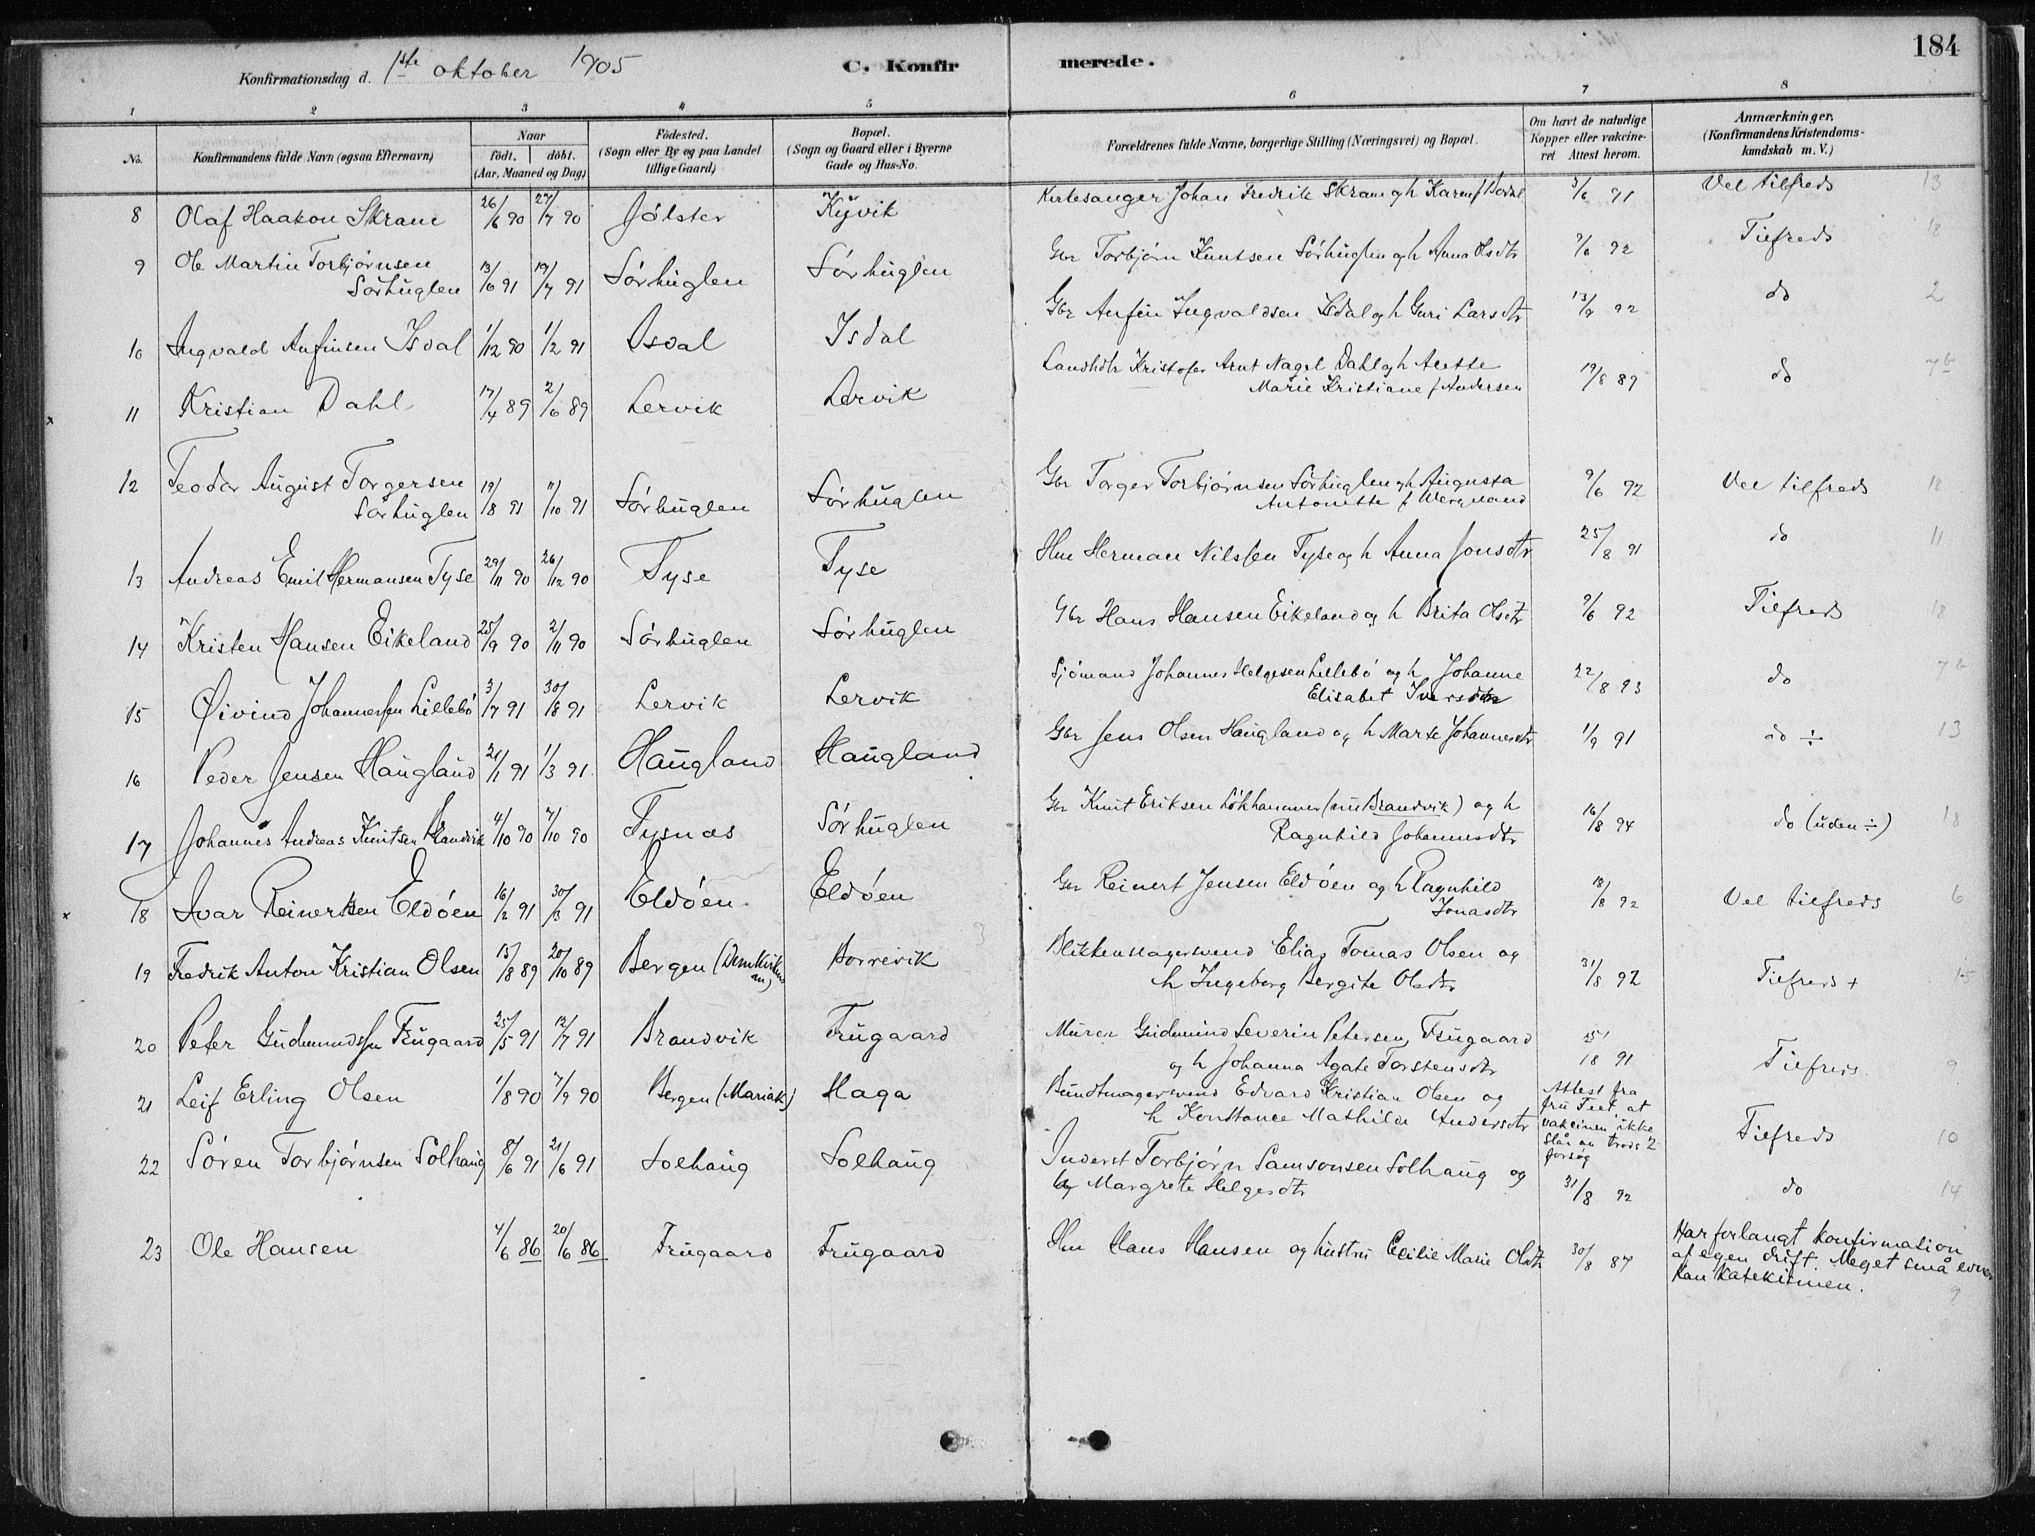 184
Konfirmationsdag d. 1ste oktober 1905 C. Konfirmerede.
1 2 3 4 5 6 7 8
No. Konfirmandens fulde Navn (ogsaa Efternavn) Naar født. døbt. (Aar, Maaned og Dag) Fødested. (Sogn eller By og paa Landet tillige Gaard) Bopæl. (Sogn og Gaard eller i Byerne Gade og Hus-No. Forældrenes fulde Navne, borgerlige Stilling (Næringsvei) og Bopæl. Om havt de naturlige Kopper eller vakcineret Attest herom. Anmærkninger. (Konfirmandens Kristendomskundskab m. V.)
8 Olaf Haakon Skram 26/6 90 27/7 90 Jølster Kyvik Kirkesanger Johan Fredrik Skram og h Karen f. 3/6 91 Vel tilfreds 13
9 Ole Martin Torbjørnsen Sørhuglen 13/6 91 19/7 91 Sørhuglen Sørhuglen Gbr Torbjørn Knutsen Sørhuglen og h Anna Olsdtr 9/6 92 Tilfreds 18
10 Ingvald Anfinsen Isdal 1/12 90 1/2 91 Isdal Isdal Gbr Anfin Ingvaldsen Isdal og h Guri Larsdtr 13/9 92 do 2
11 Kristian Dahl 17/4 89 2/6 89 Lervik Lervik Landhdlr Kristofer Arnt Nagel Dahl og h Alette Marie Kristiane f. Andersen 19/8 89 do 7b
12 Teodor August Torgersen Sørhuglen 19/8 91 11/10 91 Sørhuglen Sørhuglen Gbr Torger Torbjørnsen Sørhuglen og h Augusta Antonette f. 9/6 92 Vel tilfreds 18
13 Andreas Emil Hermansen Tyse 29/11 90 26/12 90 Tyse Tyse Hm Herman Nilssen Tyse og h Anna Jonsdtr 25/8 91 do 11
14 Kristen Hansen Eikeland 25/9 90 2/11 90 Sørhuglen Sørhuglen Gbr Hans Hansen Eikeland og h Brita Olsdtr 9/6 92 Tilfreds 18
15 Øivind Johannessen Lillebø 3/7 91 30/8 91 Lervik Lervik Sjømand Johannes Helgesen Lillebø og h Johanne Elisabet Iversdtr 22/8 93 do 7b
16 Peder Jensen Haugland 21/1 91 1/3 91 Haugland Haugland Gbr Jens Olsen Haugland og h Marta Johannesdtr 1/9 91 do ÷ 13
17 Johannes Andreas Knutsen Brandvik 4/10 90 7/10 90 Tysnæs Sørhuglen Gbr Knut Eriksen Løkhammer (nu Brandvik) og h Ragnhild Johannesdtr 16/8 94 do (uden ÷) 18
18 Ivar Reinertsen Eldøen 16/2 91 30/3 91 Eldøen Eldøen Gbr Reinert Jensen Eldøen og h Ragnhild Jonasdtr 18/8 92 Vel tilfreds 6
19 Fredrik Anton Kristian Olsen 15/8 89 20/10 89 Bergen (Domkirken) Borrevik Blikkenslagersvend Elias Tomas Olsen og h Ingeborg Bergite Olsdtr 31/8 92 Tilfreds + 15
20 Peter Gudmundsen Frugaard 25/5 91 12/7 91 Brandvik Frugaard Murer Gudmund Severin Petersen Frugaard og h Johanna Agate Torstensdtr 18 91 Tilfreds 9
21 Leif Erling Olsen 1/8 90 7/9 90 Bergen (Mariak) Haga Bundtmagersvend Edvard Kristian Olsen og h Konstance Mathilde Andersdtr Attest fra fru Feet, at vakcinen ikke slår an trods 2 forsøg Tilfreds 10
22 Søren Torbjørnsen Solhaug 8/6 91 21/6 91 Solhaug Solhaug Inderst Torbjørn Samsonsen Solhaug og h Margrete Helgesdtr 31/8 92 do 14
23 Ole Hansen 4/6 86 20/6 86 Frugaard Frugaard Hm Hans Hansen og hustru Cecilie Marie Olsdtr 30/8 87 Har forlangt konfirmation af egen drift. Meget små evner. Kan katekismen. 9